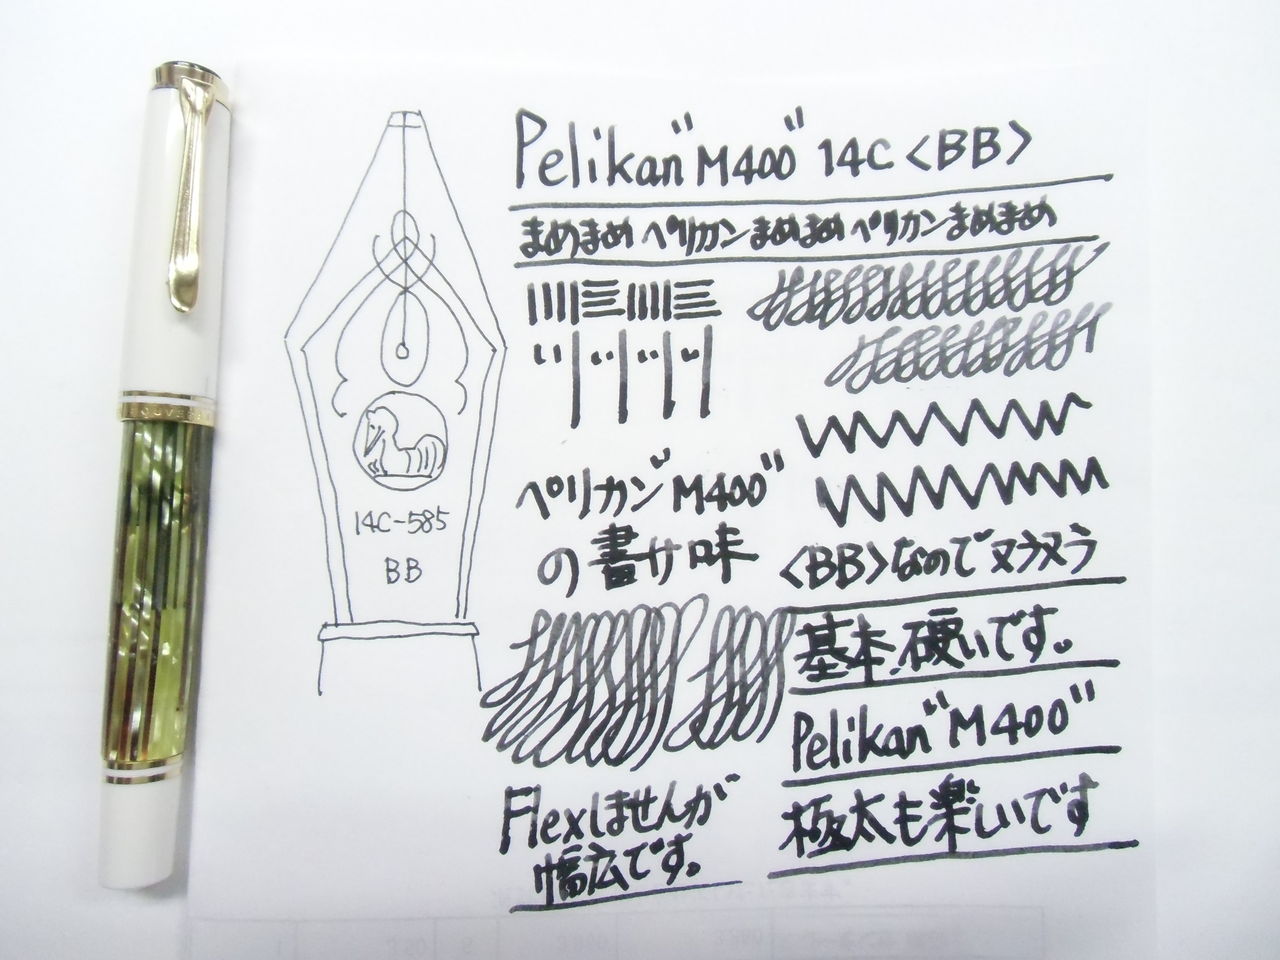 Pelikan "M400" 14C <BB>
まめまめ ペリカン まめまめ ペリカン まめまめ
ペリカン "M400"
の書サ味
<BB>なのでヌラヌラ
基本、硬いです。
Pelikan "M400"
極太も楽しいです
Flexしませんが
幅広です。
14C-585
BB
SOUVERÄN